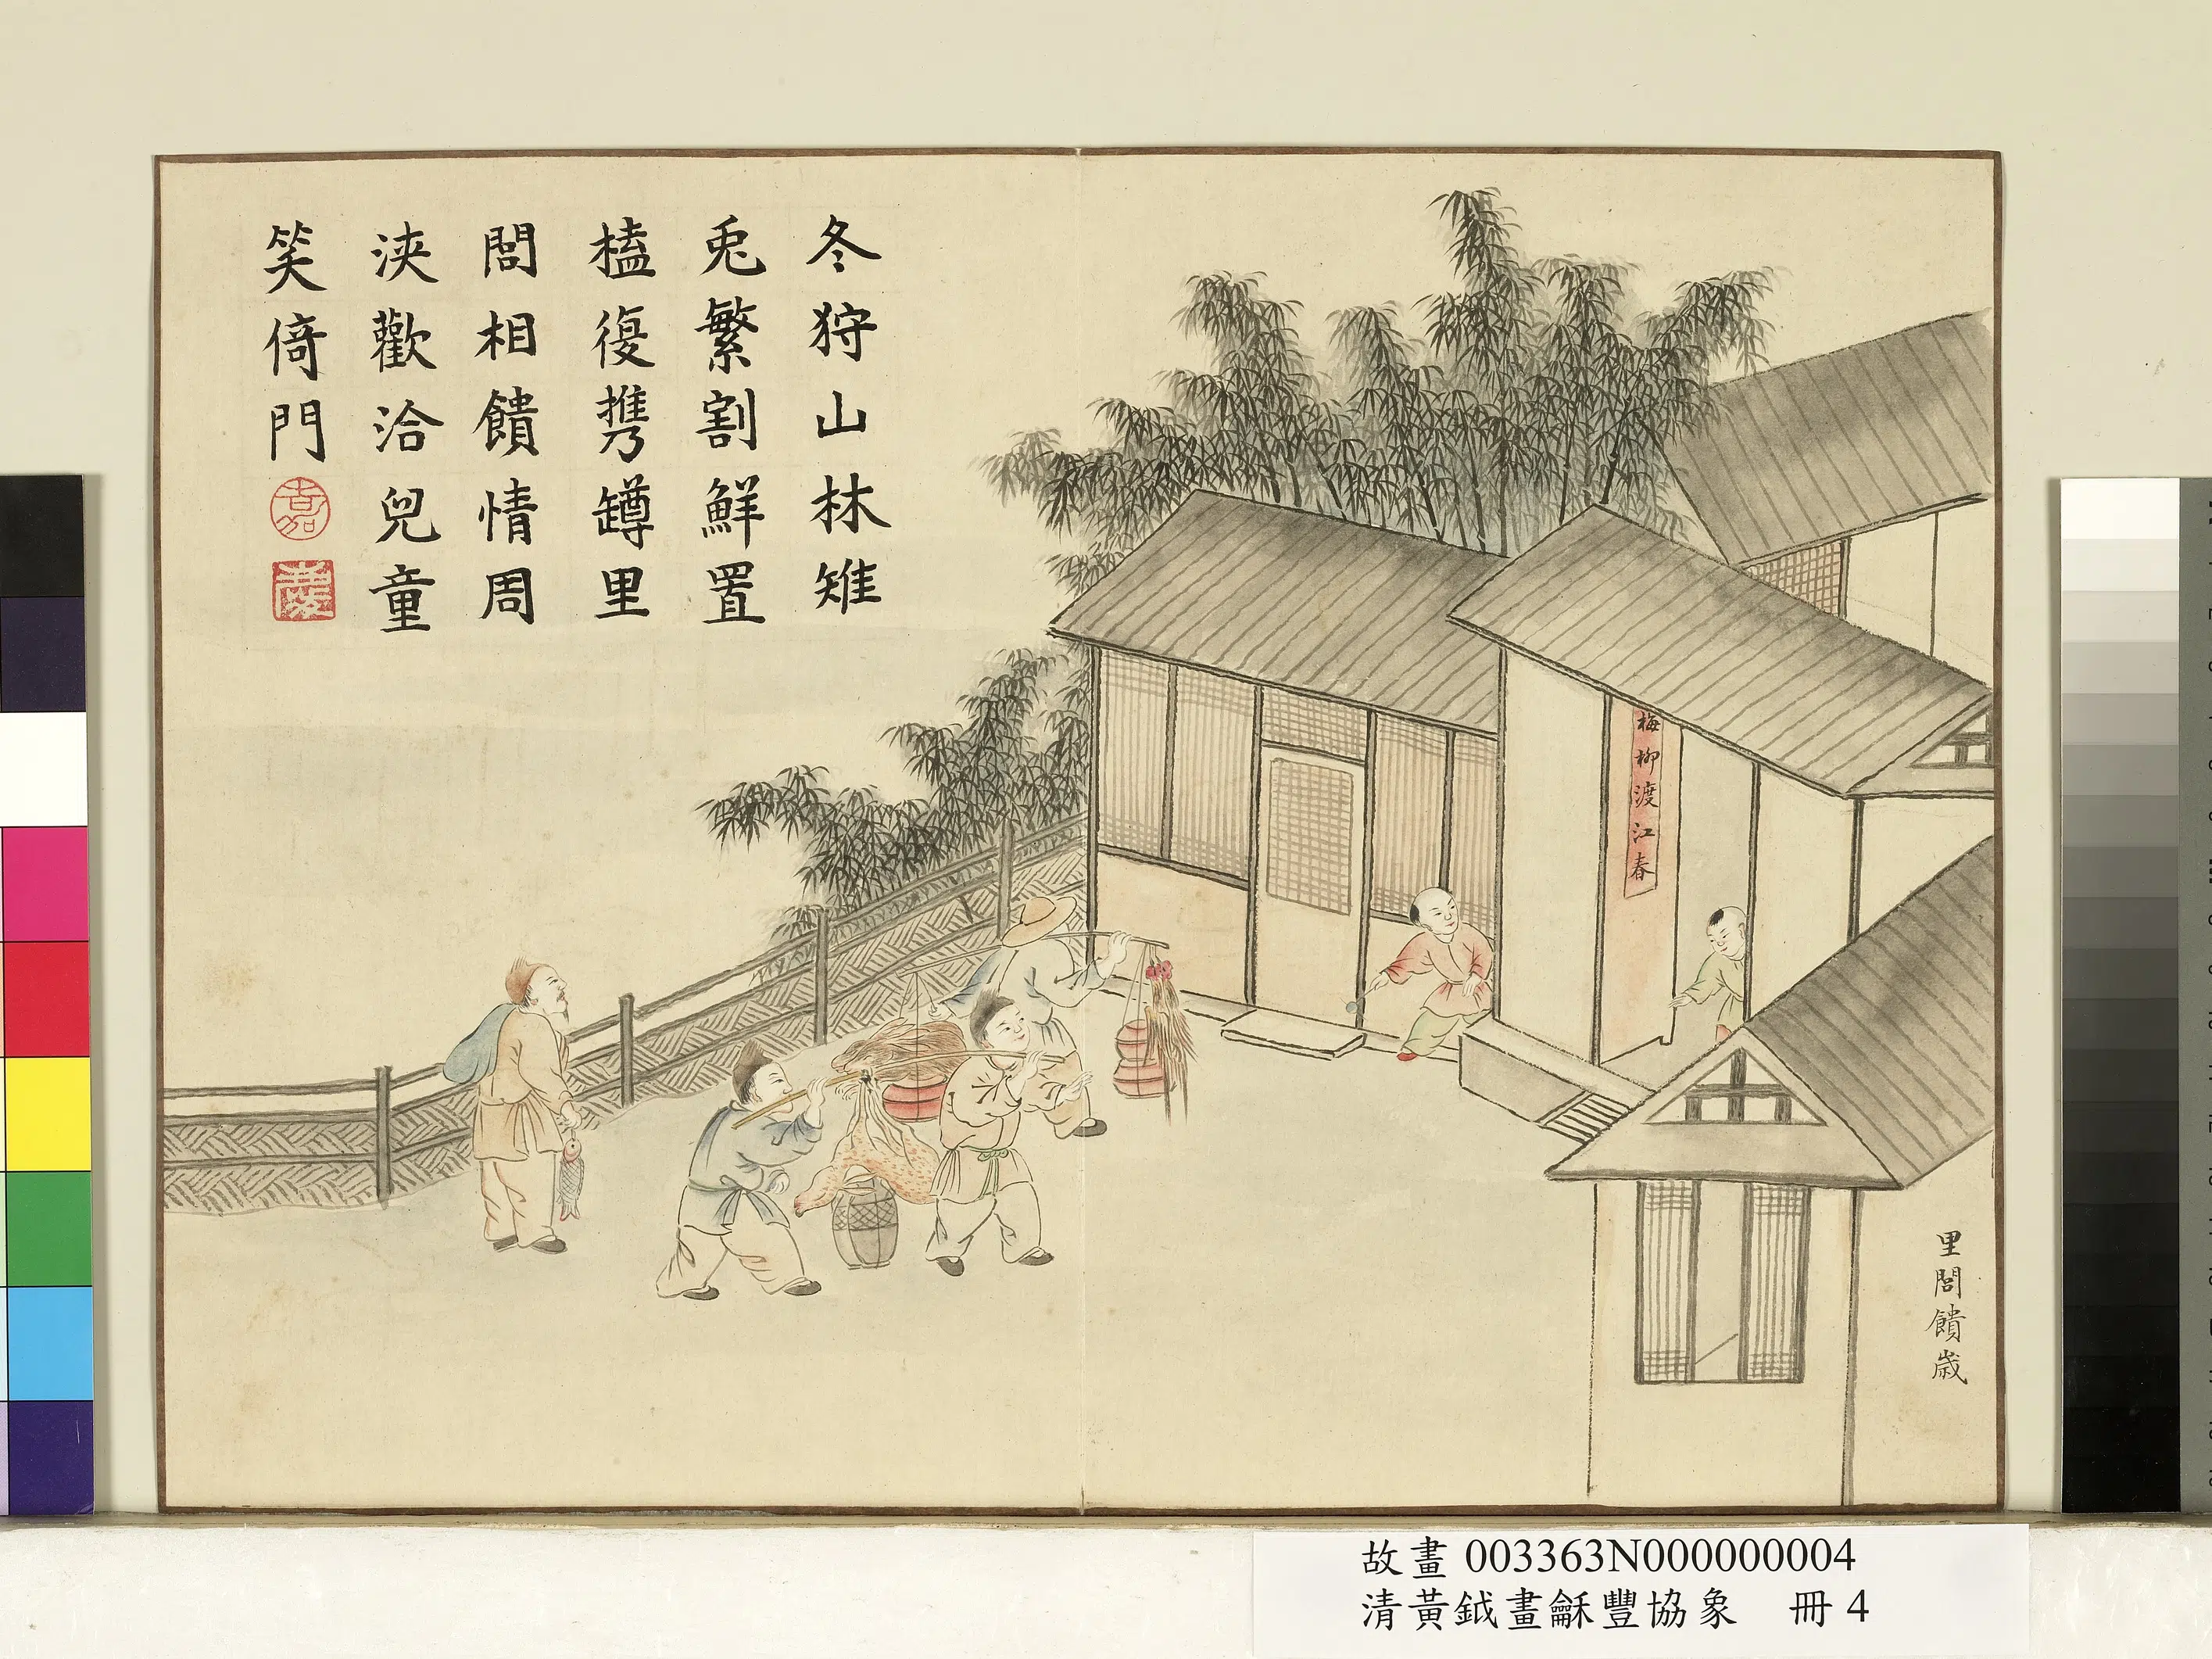 冬狩山林雉
兎繁割鮮置
榼復攜罇里
閭相饋情周
浹歡洽兒童
笑倚門
嘉
慶
梅柳渡江春
里閭饋歲
故畫 003363N000000004
清黃鉞畫龢豐協象 冊 4